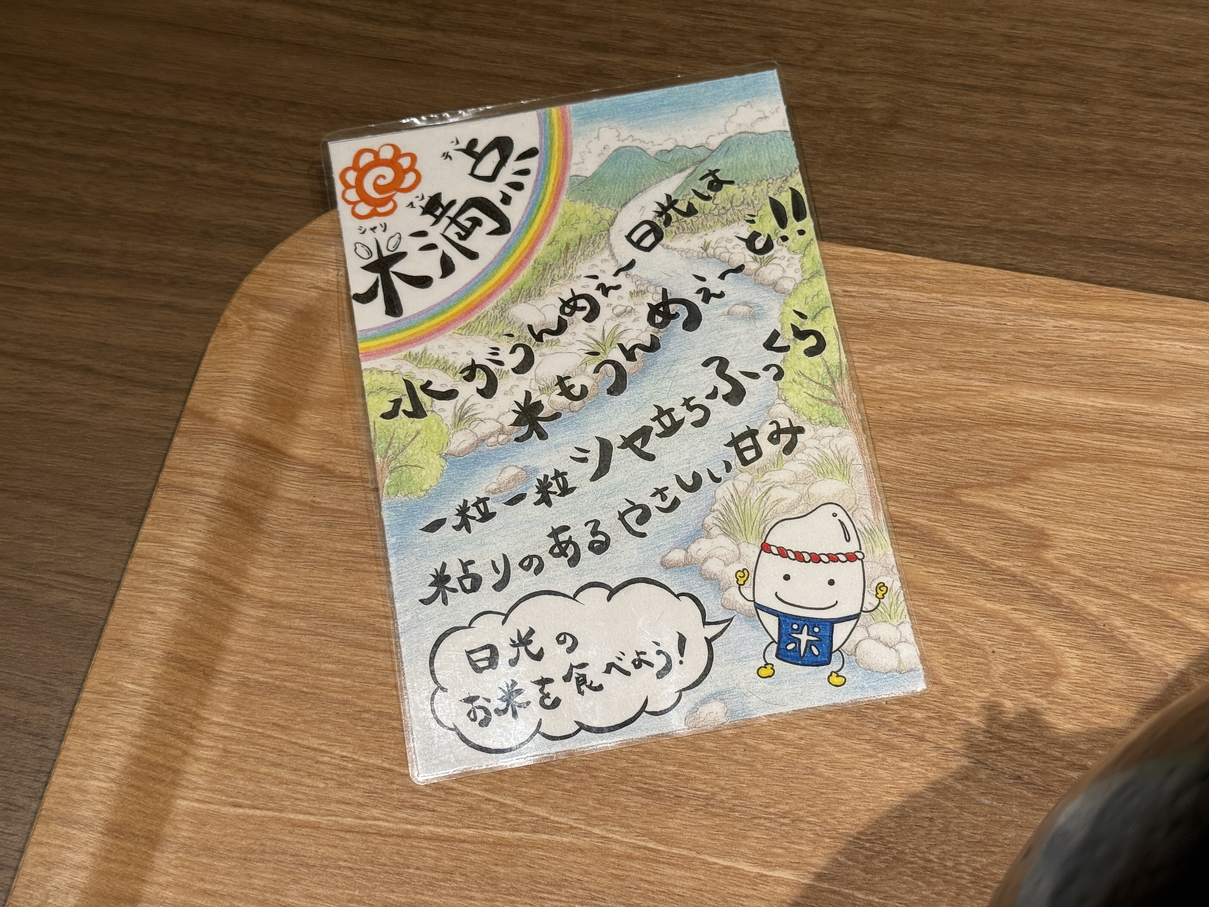 米満点
シャリ マン テン
日光は
水がうんめぇ〜
米もうんめぇ〜ど!!
一粒一粒シャ立ちふっくら
粘りのあるやさしい甘み
日光の
お米を食べよう!
米